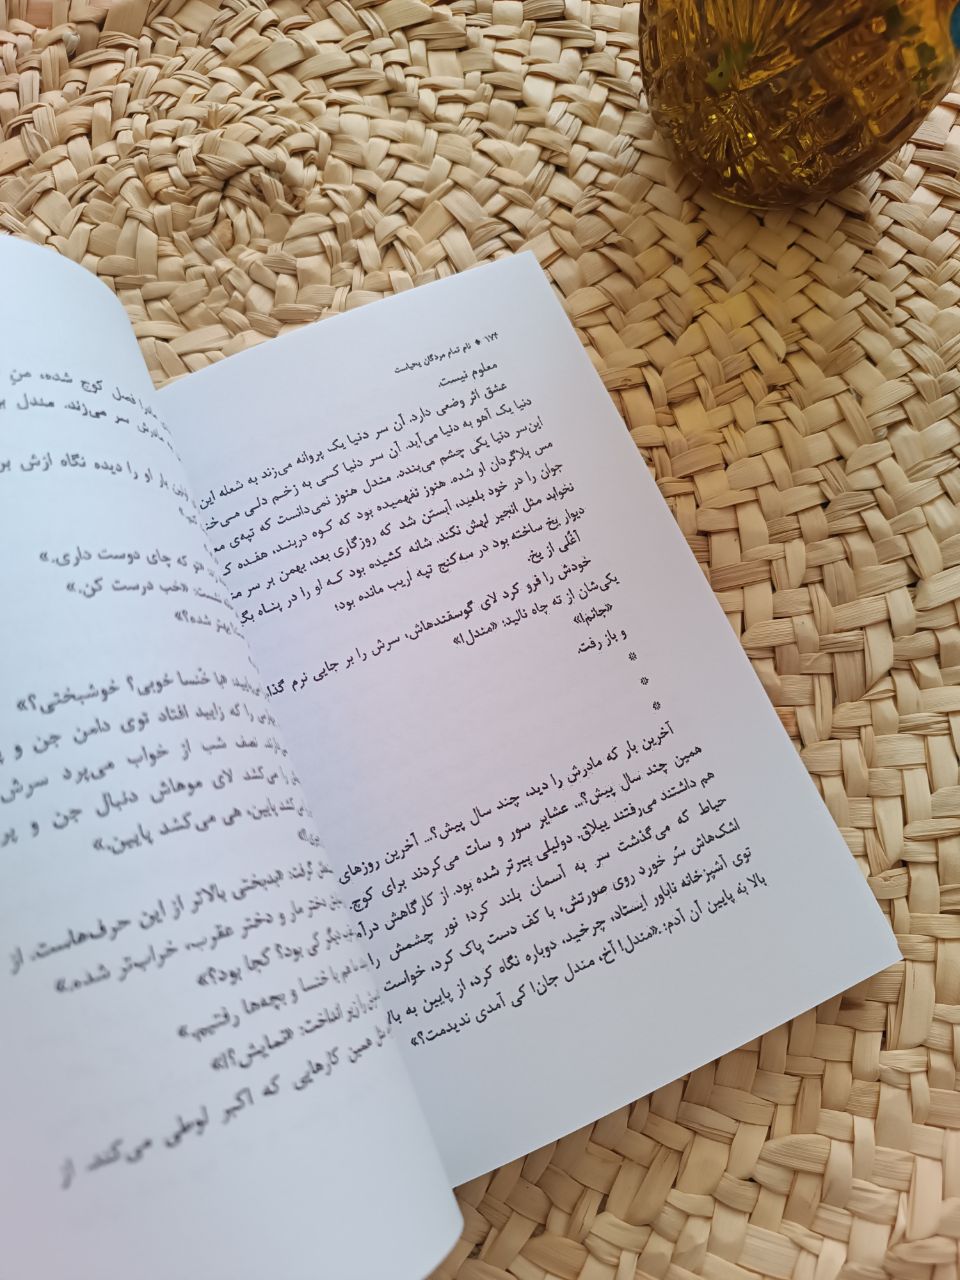 ۱۷۴ ● نام تمام مردگان یحیاست
معلوم نیست.
عشق اثر وضعی دارد. آن سر دنیا یک پروانه می‌زند به شعله این
دنیا یک آهو به دنیا می‌آید. آن سر دنیا کسی به زخم دلی
این‌سر دنیا یکی چشم می‌بندد. مندل هنوز نمی‌دانست که تپه‌ی
مس بلاگردان او شده. هنوز نفهمیده بود که کوه دربند، هفده
جوان را در خود بلعید، آبستن شد که روزگاری بعد، بهمن بر سر
نخوابد مثل انجیر لهش نکند. شانه کشیده بود که او را در پناه
دیوار یخ ساخته بود در سه‌کنج تپه اریب مانده بود؛
اُغُلی از یخ.
خودش را فرو کرد لای گوسفندهاش، سرش را بر جایی نرم
یکی‌شان از ته چاه نالید: «مندل!»
«جانم!»
و باز رفت.
*
*
*
آخرین بار که مادرش را دید، چند سال پیش؟... آخرین روزهای
همین چند سال پیش؟... عشایر سور و سات می‌کردند برای کوچ.
هم داشتند می‌رفتند ییلاق. دولیلی پیرتر شده بود. از کارگاهش
حیاط که می‌گذشت سر به آسمان بلند کرد؛ نور چشمش را
اشک‌هاش سُر خورد روی صورتش، با کف دست پاک کرد، خواست
توی آشپزخانه ناباور ایستاد، چرخید، دوباره نگاه کرد، از پایین به
بالا به پایین آن آدم: «مندل! آخ، مندل جان! کی آمدی ندیدمت؟»
فصل کوچ شده، من
مادرش سر می‌زند. مندل
بار او را دیده نگاه ازش
که چای دوست داری.»
«خب درست کن.»
شده؟»
خنسا خوبی؟ خوشبختی؟»
را که زایید افتاد توی دامن جن و
نصف شب از خواب می‌پرد سرش
را می‌کشد لای موهاش دنبال جن و
می‌کشد پایین، هی می‌کشد پایین.»
گفت: «بدبختی بالاتر از این حرف‌هاست. از
دختر مار و دختر عقرب، خراب‌تر شده.»
دیگر کی بود؟ کجا بود؟»
با خنسا و بچه‌ها رفتیم.»
انداخت: «نمایش؟!»
همین کارهایی که اکبر لوطی می‌کند. از